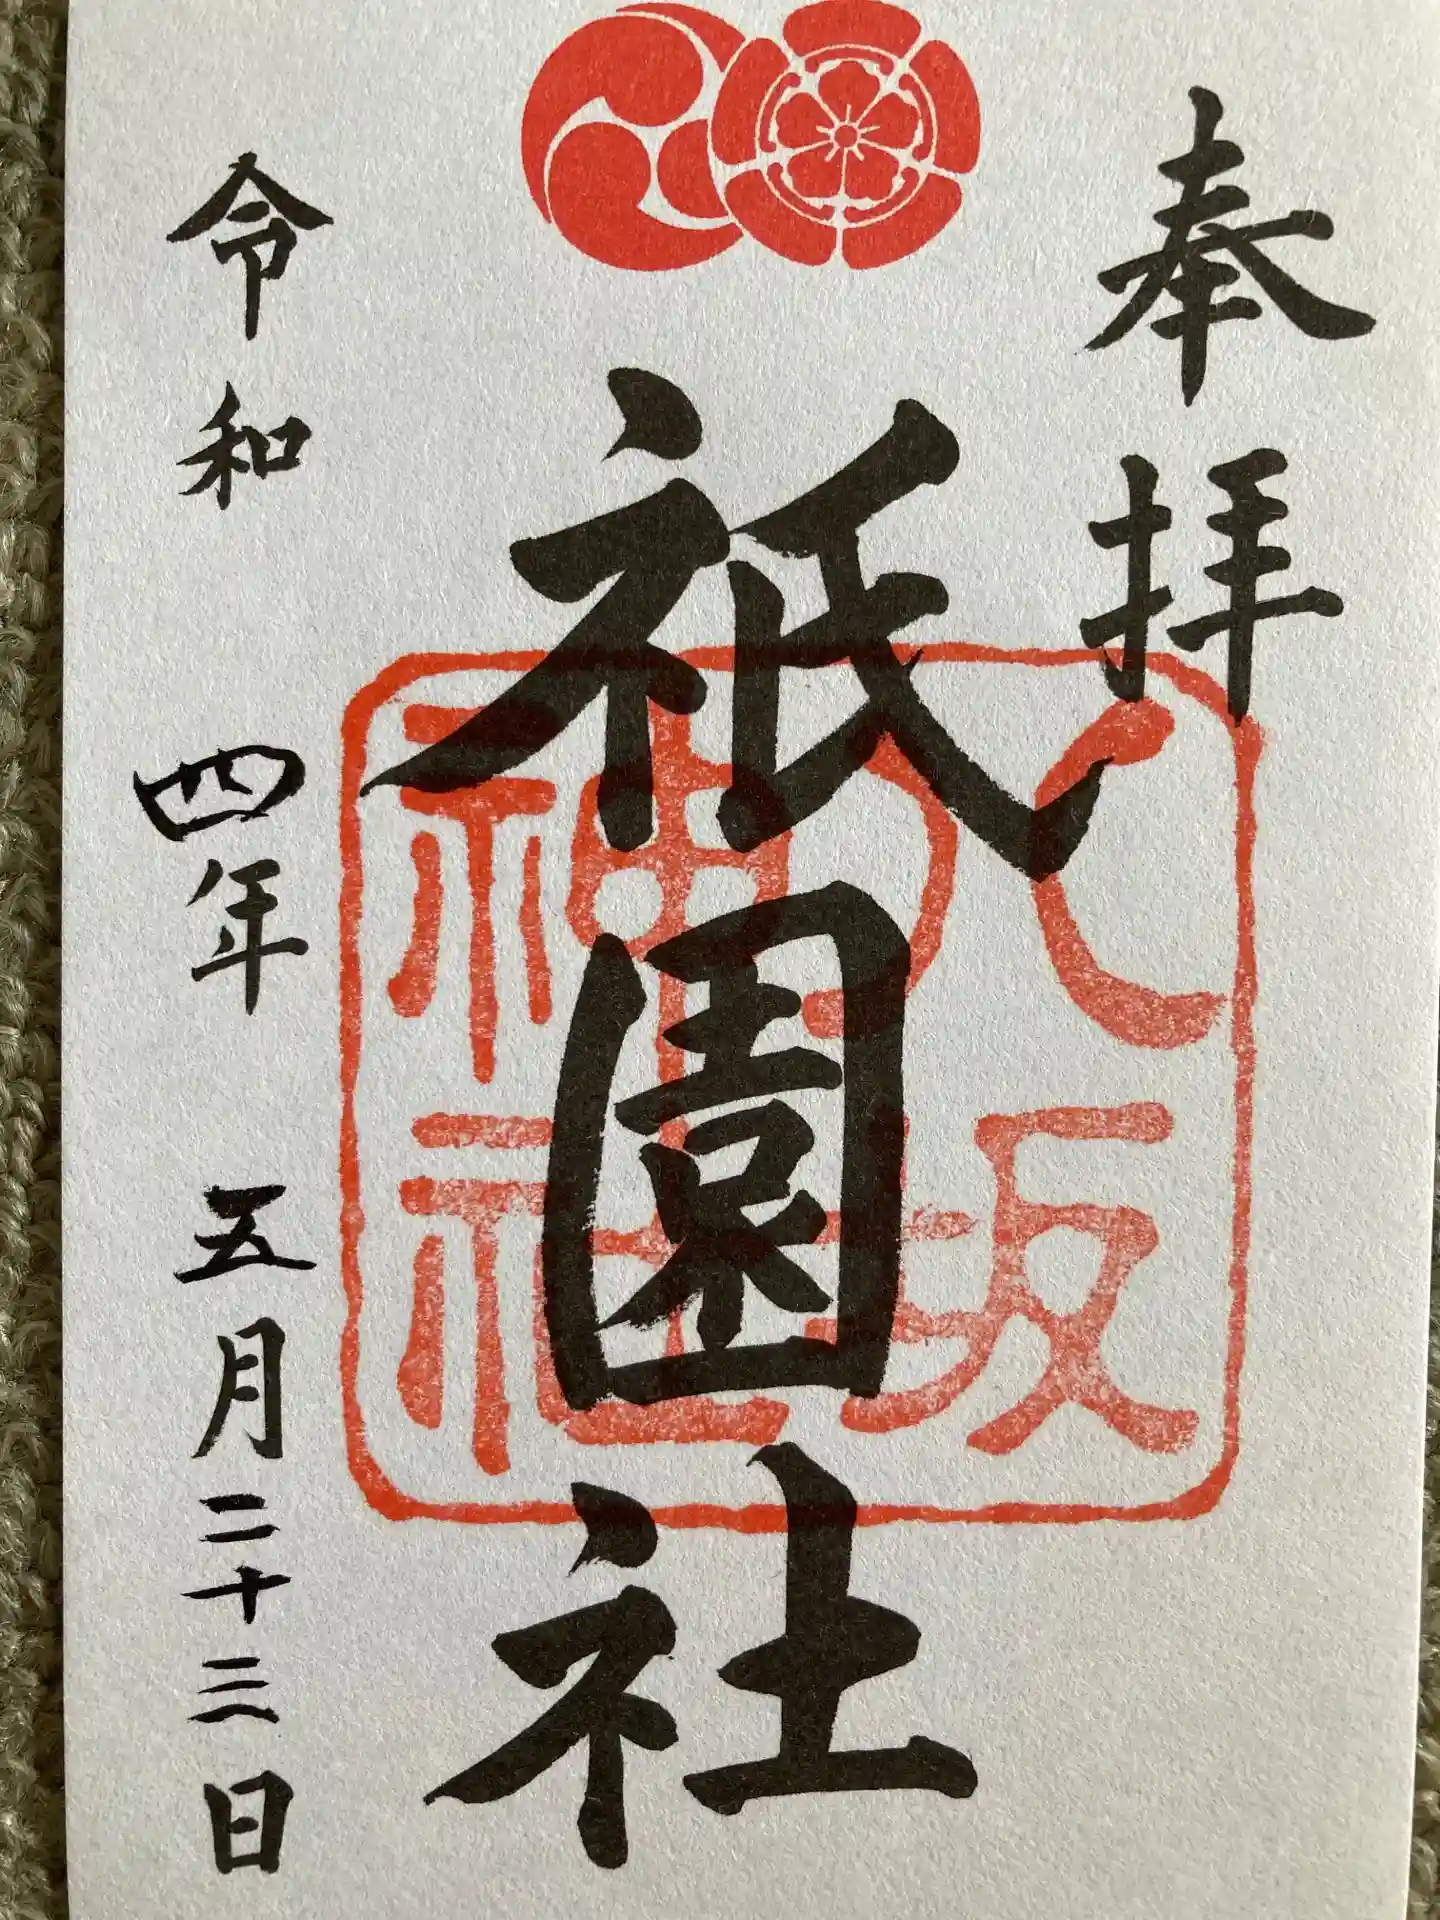 奉拝
祇園社
八坂
神社
令和四年五月二十三日